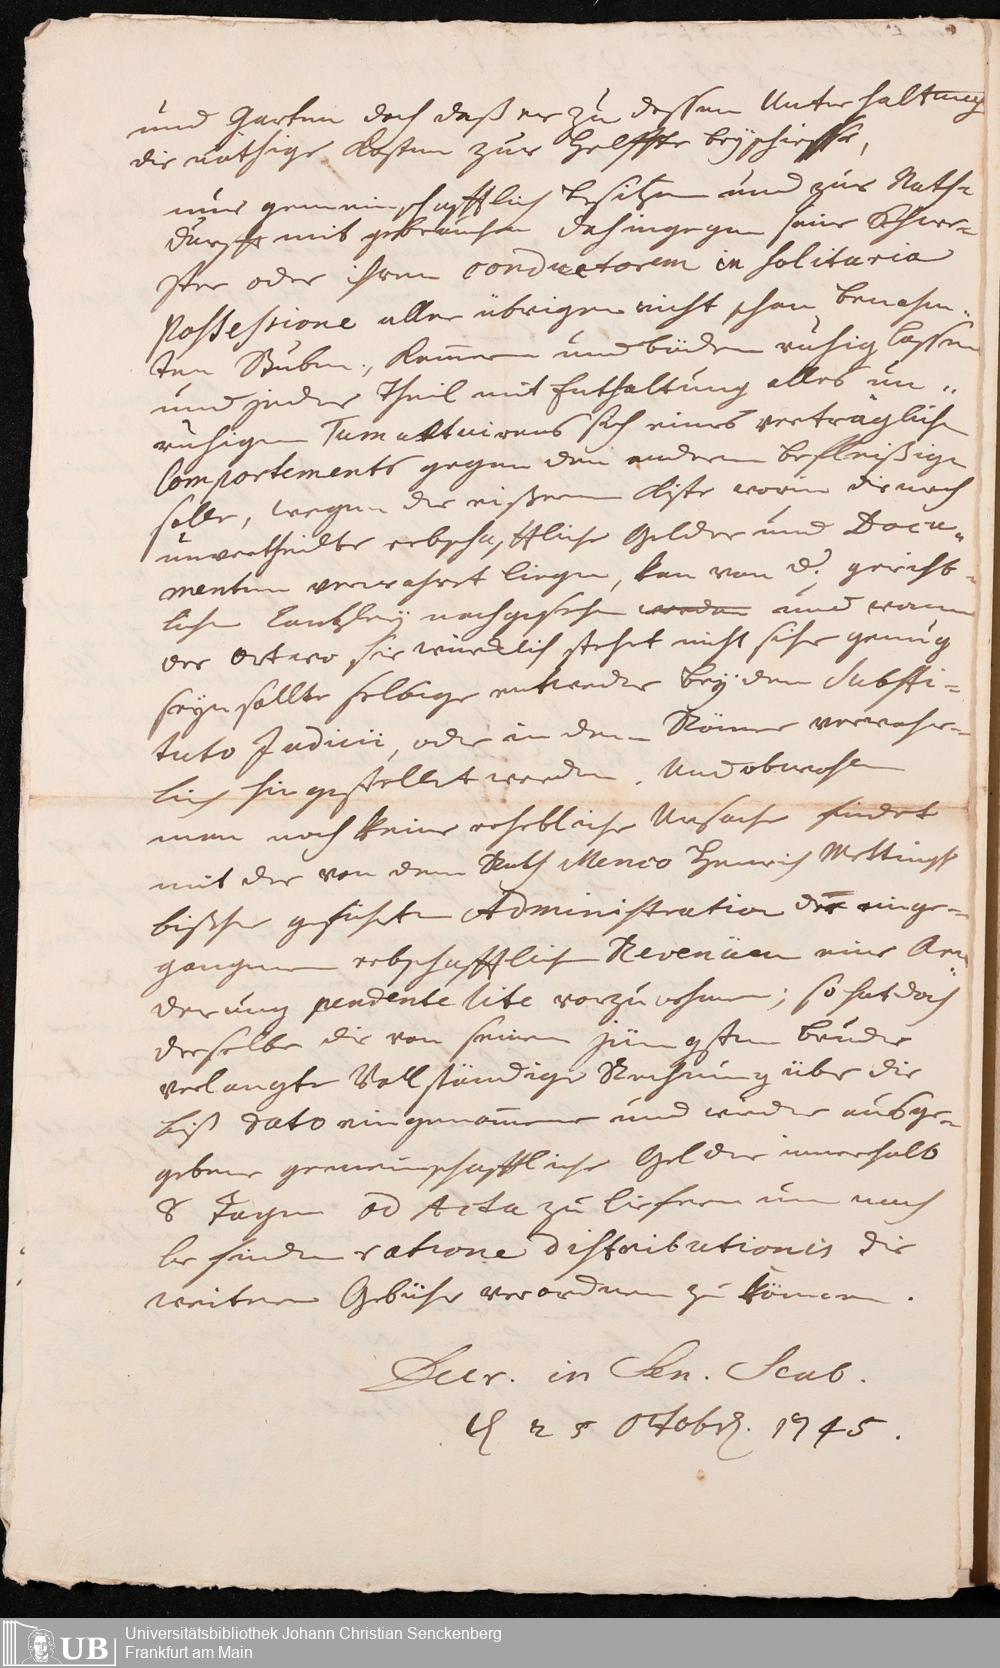 und Garten doch daß er zu dessen Unterhaltung
die nöthige Kosten zur Helffte beyschiesse,
nur gemeinschafftlich besitzen und zur Noth¬
durfft mit gebrauchen dahingegen seine Schwe¬
ster oder ihren conductorem in solitaria
Possessione aller übrigen nicht schon benahm¬
ten Stuben, Kam̅ern und böden ruhig lassen
und jeder Theil mit Enthaltung alles un¬
ruhigen Tumultuirens sich eines verträglichen
Comportements gegen den anderen befleißigen
solle, wegen der eißern Kiste worin die noch
unvertheilte erbschafftliche Gelder und Docu¬
menten verwahret liegen, kan von d. gericht¬
lichen Cantzley nachgesehen werden und wann
der Ort wo sie würcklich stehet nicht sicher genug
seyn sollte selbige entweder bey dem Substi¬
tuto Judicii, oder in dem Römer verwahr¬
lich hingestellet werden. Und obwohlen
man noch keine erhebliche Ursache findet
mit der von dem Rath Menco Henrich Mettingh
bißher geführten Administration der einge¬
gangenen erbschafftlichen Revenüen eine Aen¬
derung pendente lite vorzunehmen; so hat doch
derselbe die von seinem jüngsten Bruder
verlangte Vollständige Rechnung über die
biß dato eingenom̅ene und wieder ausge¬
gebene gemeinschafftliche Gelder innerhalb
8 Tagen ad Acta zu liefern um nach
befinden ratione distributionis die
weitere Gebühr verordnen zu können.
Decr. in Sen. Scab.
d. 25 Octobr. 1745.
UB
Universitätsbibliothek Johann Christian Senckenberg
Frankfurt am Main